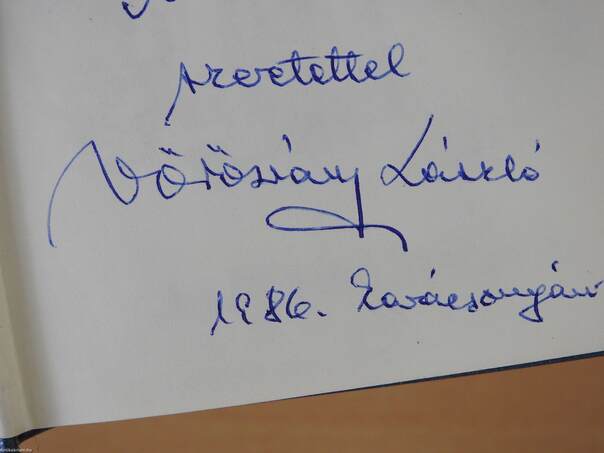 szeretettel
Vörösváry László
1986. karácsonyán